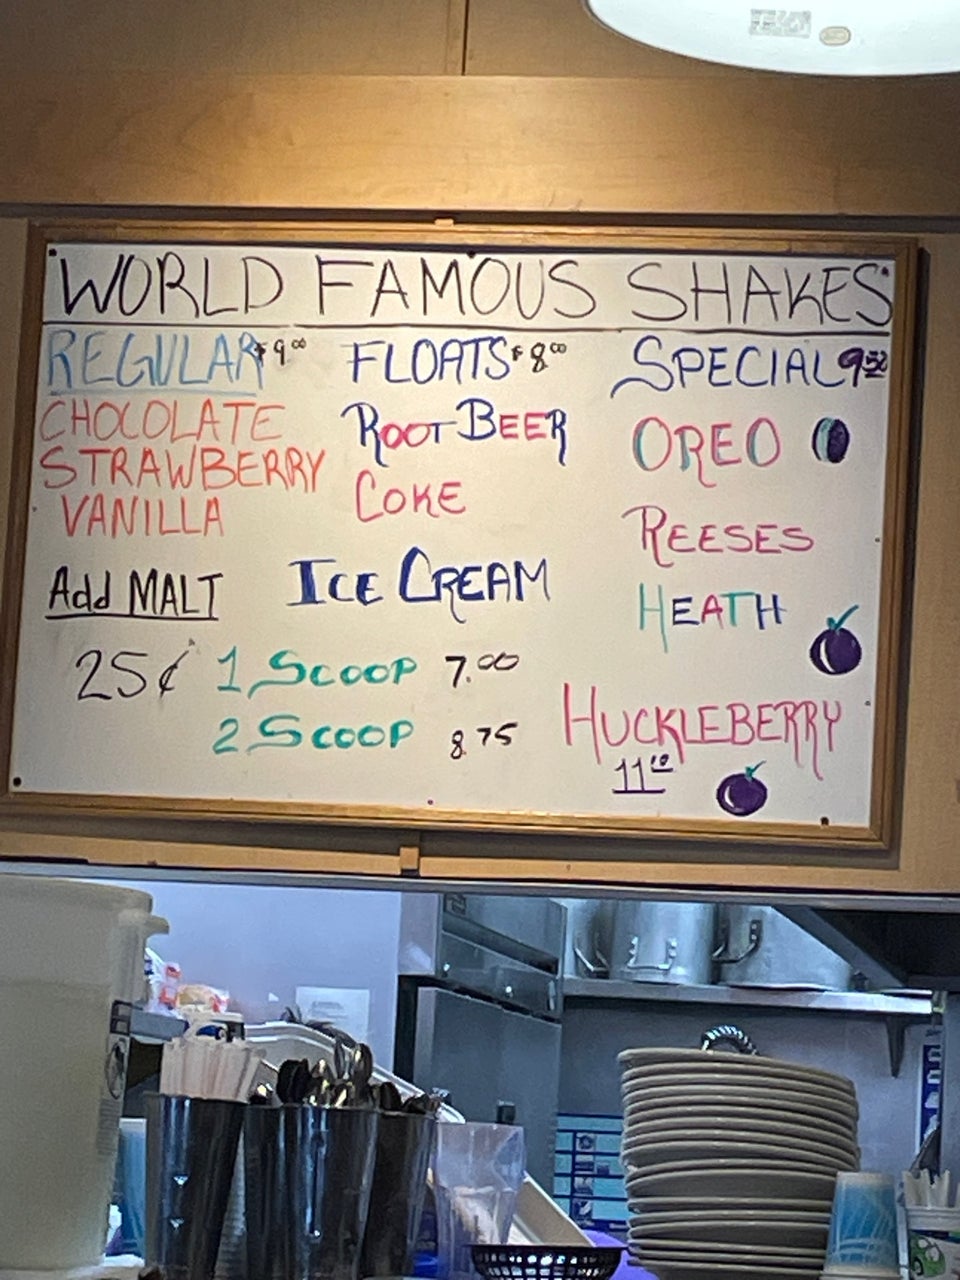 WORLD FAMOUS SHAKES
REGULAR $9.00
CHOCOLATE
STRAWBERRY
VANILLA
Add MALT
25¢
FLOATS $8.00
ROOT BEER
COKE
ICE CREAM
1 SCOOP 7.00
2 SCOOP 8.75
SPECIAL 9.50
OREO
REESES
HEATH
HUCKLEBERRY